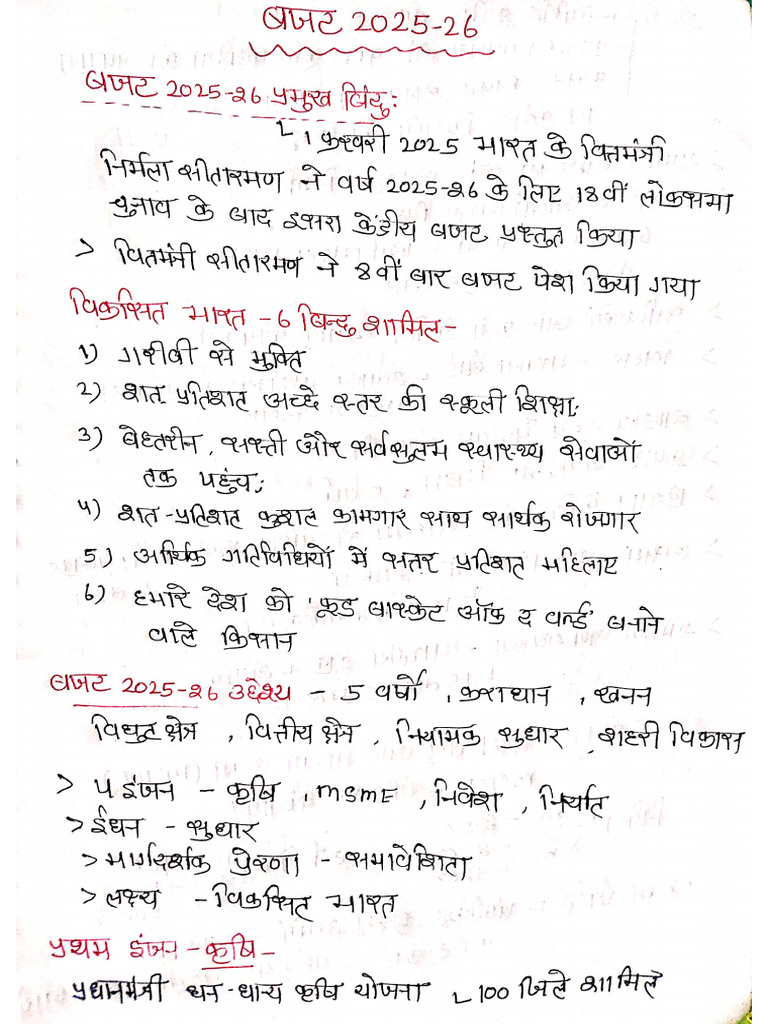 बजट 2025-26
बजट 2025-26 प्रमुख बिंदु:
1 फरवरी 2025 भारत के वितमंत्री
निर्मला सीतारमण ने वर्ष 2025-26 के लिए 18वीं लोकसभा
चुनाव के बाद दूसरा केंद्रीय बजट प्रस्तुत किया
> वितमंत्री सीतारमण ने 8वीं बार बजट पेश किया गया
विकसित भारत - 6 बिन्दु शामिल-
1) गरीबी से मुक्ति
2) शत प्रतिशत अच्छे स्तर की स्कूली शिक्षा;
3) बेहतरीन, सस्ती और सर्वसुलभ स्वास्थ्य सेवाओं
तक पहुंच;
4) शत-प्रतिशत कुशल कामगार साथ सार्थक रोजगार
5) आर्थिक गतिविधियों में सत्तर प्रतिशत महिलाए
6) हमारे देश को 'फूड बास्केट ऑफ द वर्ल्ड' बनाने
वाले किसान
बजट 2025-26 उद्देश्य - 5 वर्षों, कराधान, खनन
विधुत क्षेत्र, वित्तीय क्षेत्र, नियामक सुधार, शहरी विकास
> 4 इंजन - कृषि, MSME, निवेश, निर्यात
> ईंधन - सुधार
> मार्गदर्शक प्रेरणा - समावेशिता
> लक्ष्य - विकसित भारत
प्रथम इंजन - कृषि -
प्रधानमंत्री धन-धान्य कृषि योजना 100 जिले शामिल